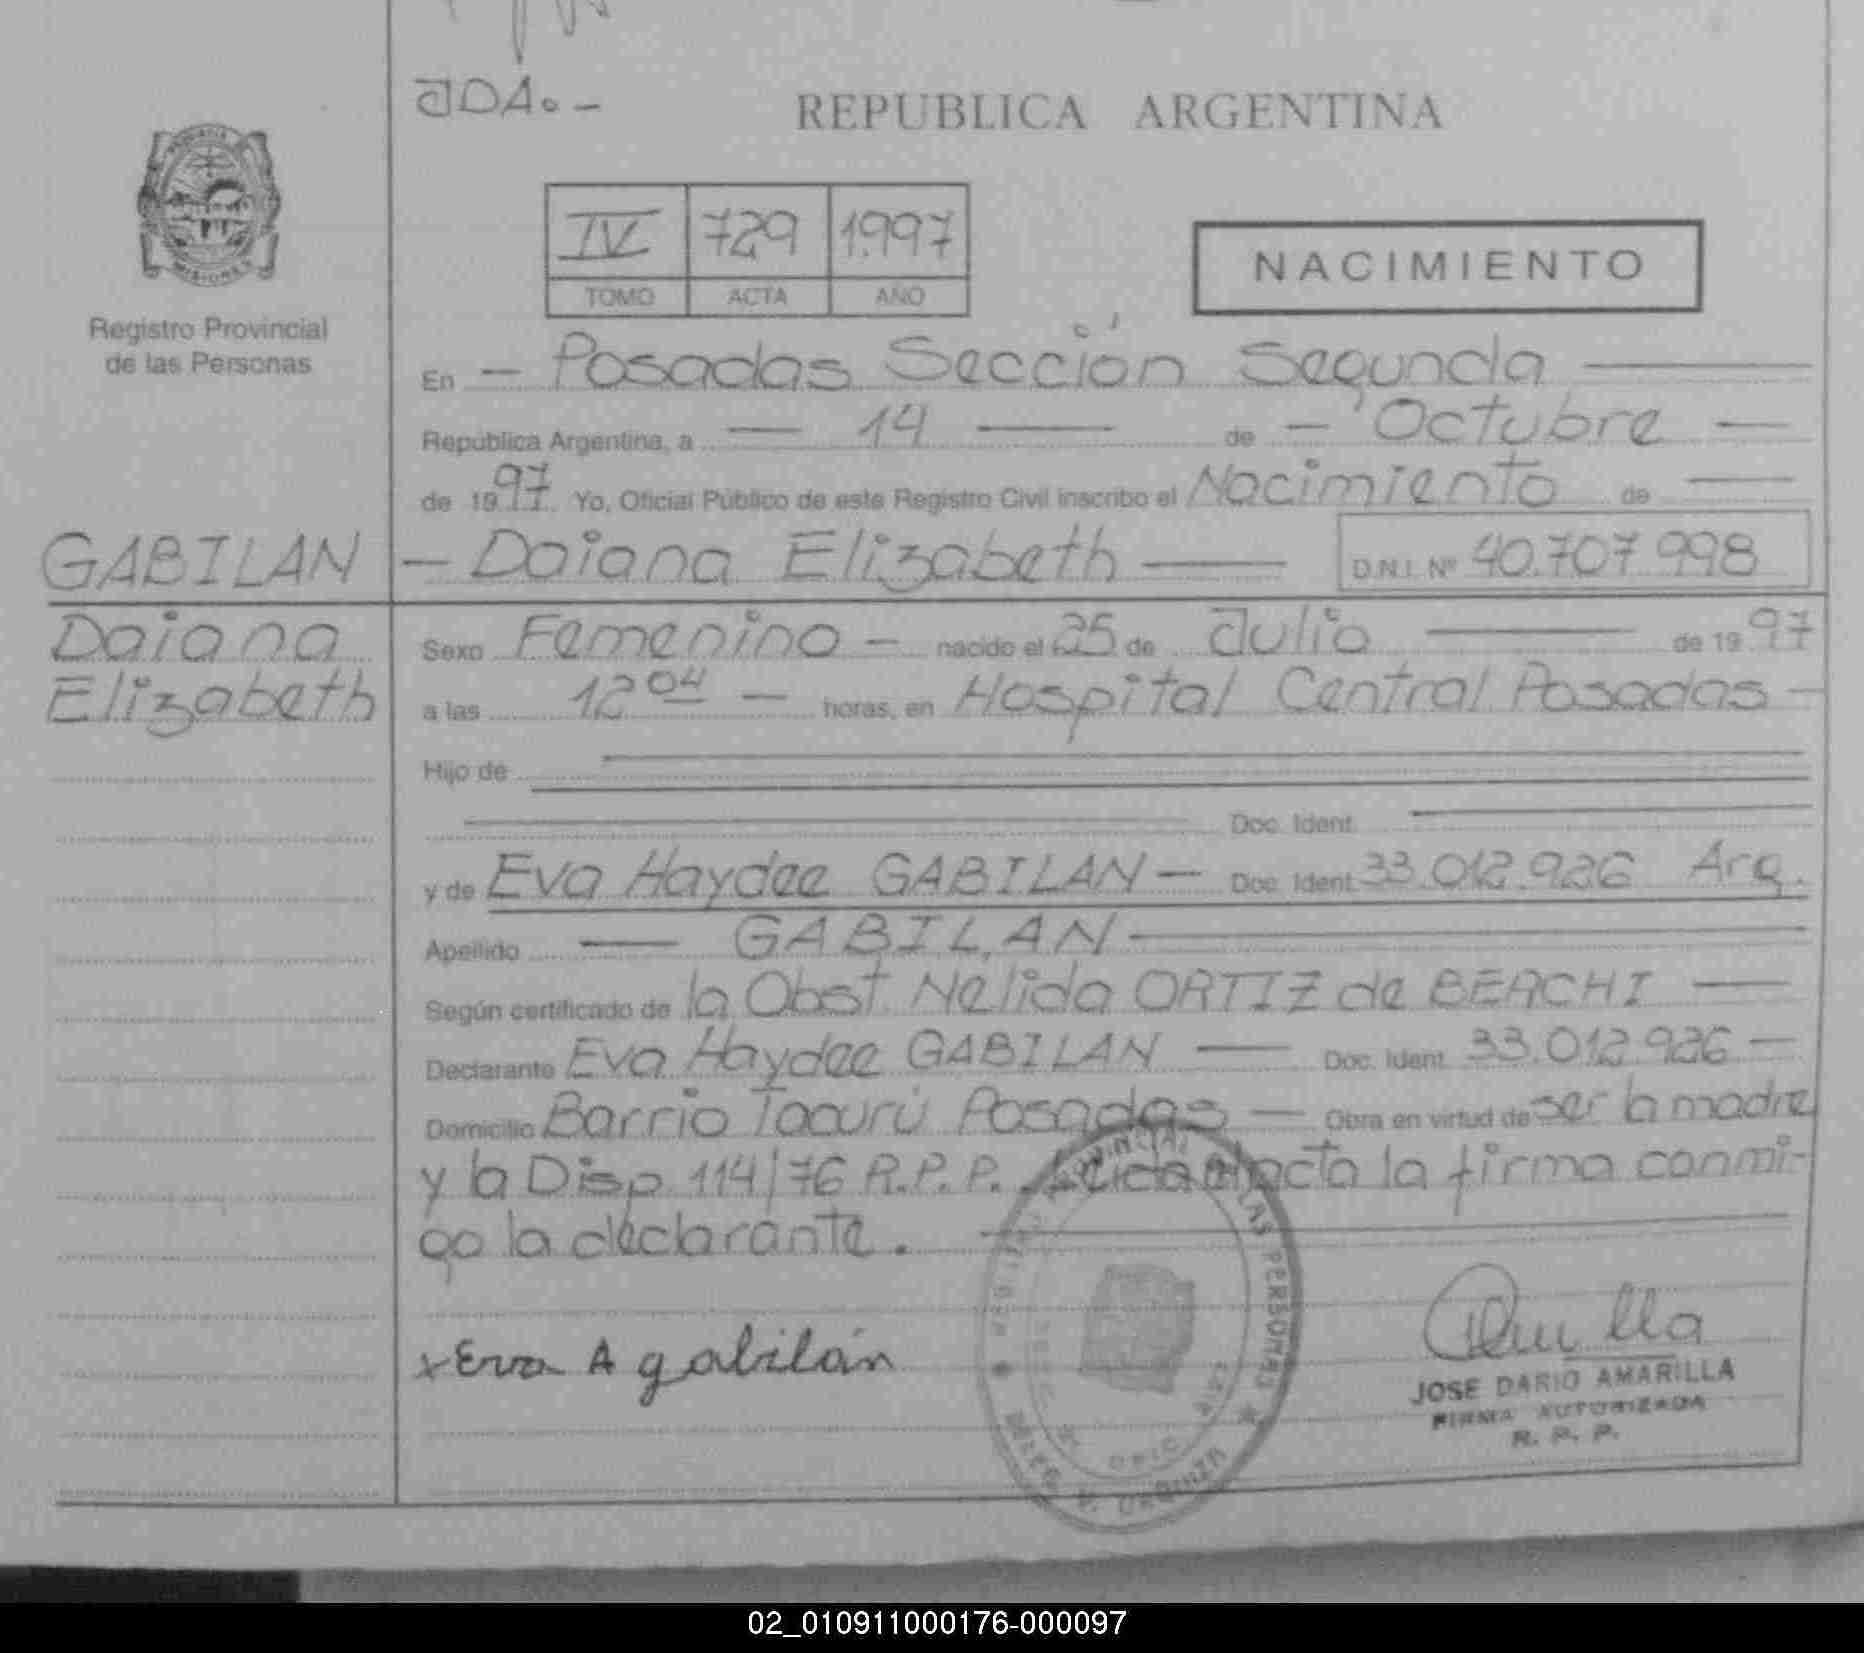 JDA.-
REPUBLICA ARGENTINA
MISIONES
Registro Provincial
de las Personas
IV 729 1997
TOMO ACTA AÑO
NACIMIENTO
En - Posadas Sección Segunda
República Argentina, a 14 de - Octubre -
de 1997. Yo, Oficial Público de este Registro Civil inscribo el Nacimiento de
GABILAN - Daiana Elizabeth D.N.I. Nº 40.707.998
Daiana
Elizabeth
Sexo Femenino - nacido el 25 de Julio de 1997
a las 12 04 - horas, en Hospital Central Posadas -
Hijo de
Doc. Ident.
y de Eva Haydee GABILAN - Doc. Ident. 33.012.926 Arg.
Apellido GABILAN
Según certificado de la Obst. Nelida ORTIZ de BERCHI
Declarante Eva Haydee GABILAN Doc. Ident. 33.012.926 -
Domicilio Barrio Tacurú Posadas - Obra en virtud de ser la madre
y la Disp. 114/76 R.P.P. Leida el acta la firma conmi-
go la declarante.
x Eva A gabilán
JOSE DARIO AMARILLA
FIRMA AUTORIZADA
R. P. P.
02_010911000176-000097